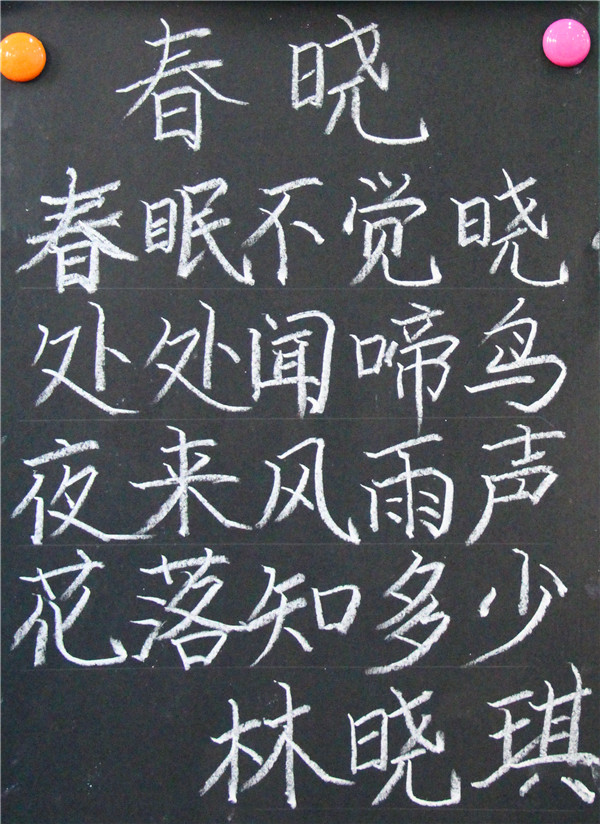 春晓
春眠不觉晓
处处闻啼鸟
夜来风雨声
花落知多少
林晓琪